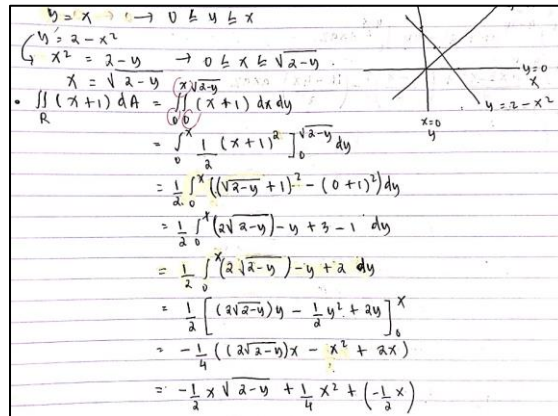 y = x → 0 → 0 ≤ y ≤ x
y = 2 - x²
x² = 2 - y → 0 ≤ x ≤ √(2-y)
x = √(2-y)
y=0
x
y = 2 - x²
x=0
y
• ∬_R (x+1) dA = ∫_0^x ∫_0^√(2-y) (x+1) dx dy
= ∫_0^x 1/2 (x+1)² ]_0^√(2-y) dy
= 1/2 ∫_0^x ((√(2-y) + 1)² - (0+1)²) dy
= 1/2 ∫_0^x (2√(2-y)) - y + 3 - 1 dy
= 1/2 ∫_0^x (2√(2-y)) - y + 2 dy
= 1/2 [(2√(2-y))y - 1/2 y² + 2y]_0^x
= -1/4 ((2√(2-y))x - x² + 2x)
= -1/2 x √(2-y) + 1/4 x² + (-1/2 x)